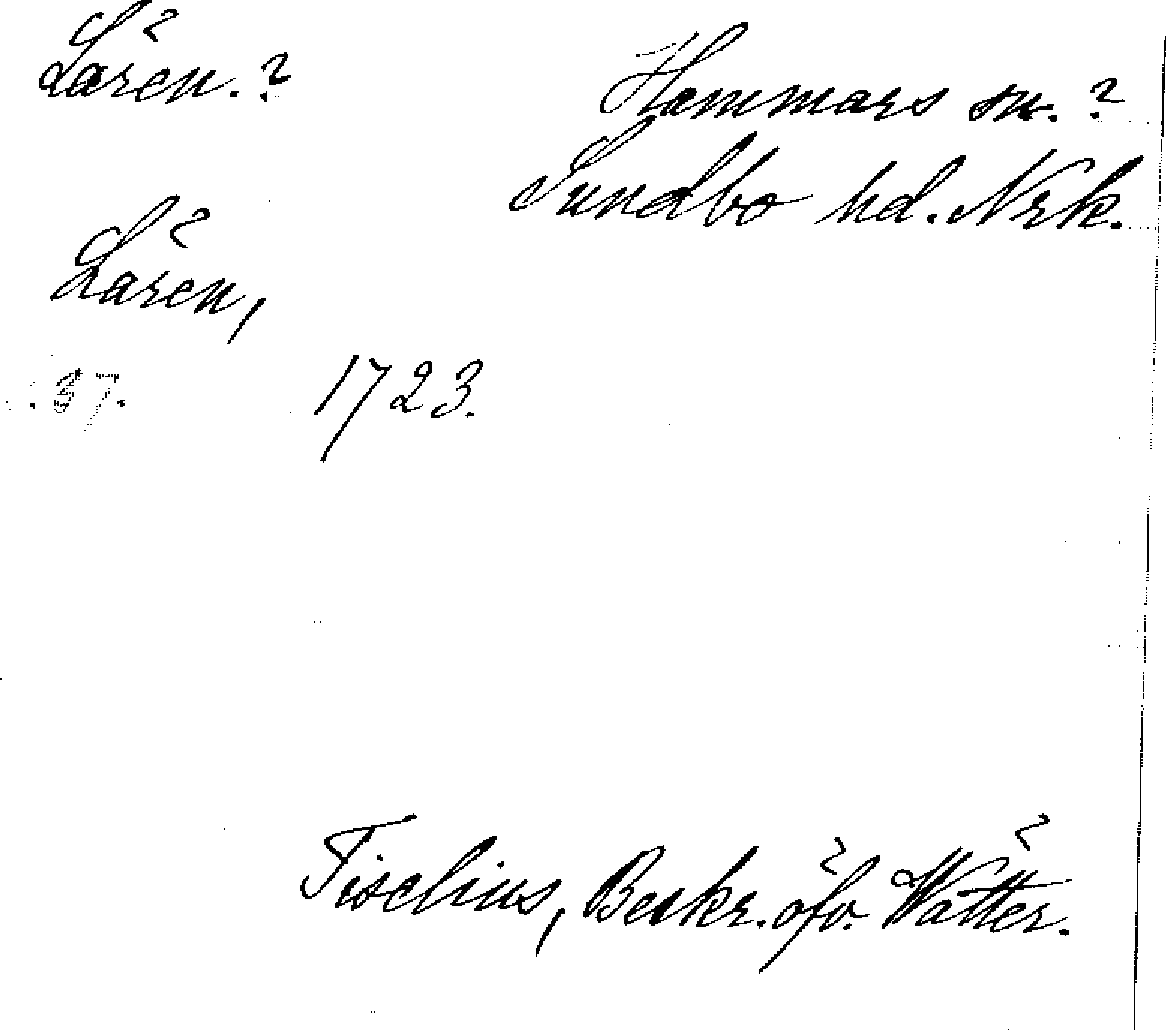 Lären.?
Hammars sn. ?
Sundbo hd. Nrk.
Lären,
. 37. 1723.
Tiselius, Beskr. öfv. Wätter.